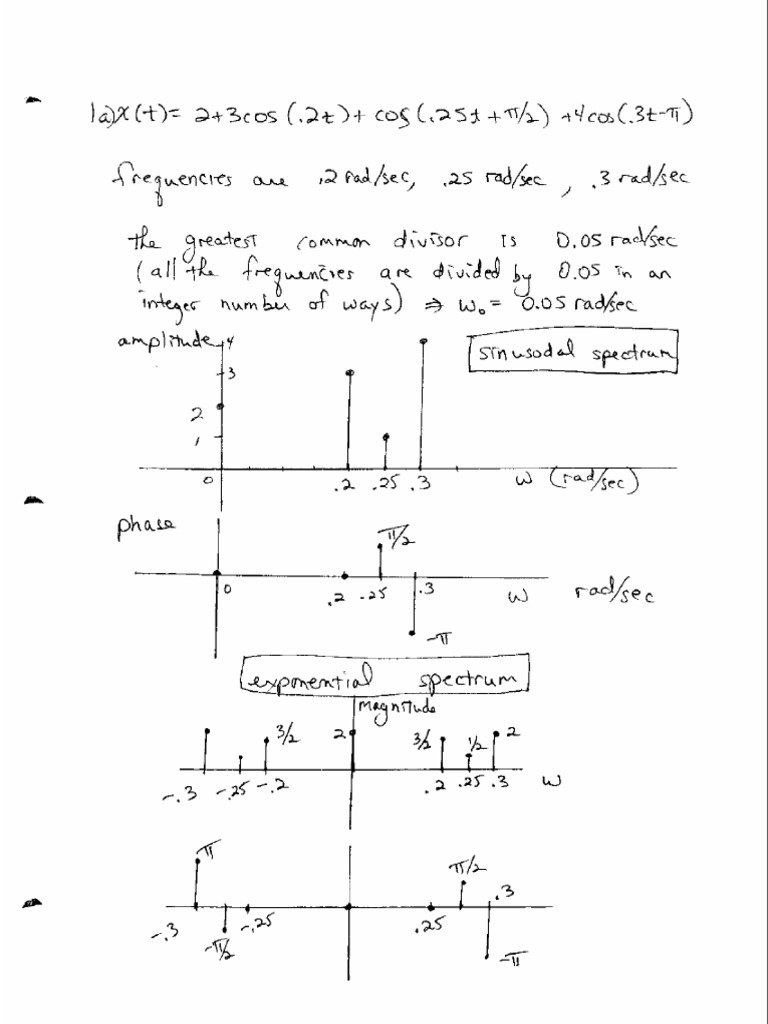 1a) x(t) = 2+3cos(.2t)+ cos(.25t+π/2) +4cos(.3t-π)
frequencies are .2 rad/sec, .25 rad/sec, .3 rad/sec
the greatest common divisor is 0.05 rad/sec
(all the frequencies are divided by 0.05 in an
integer number of ways) ⇒ ω₀ = 0.05 rad/sec
amplitude 4
sinusodal spectrum
3
2
1
0 .2 .25 .3 ω (rad/sec)
phase
π/2
0 .2 .25 .3 ω rad/sec
-π
exponential spectrum
magnitude
3/2 2 3/2 1/2 2
-.3 -.25 -.2 .2 .25 .3 ω
π
π/2
.3
-.3 -π/2 -.25 .25
-π